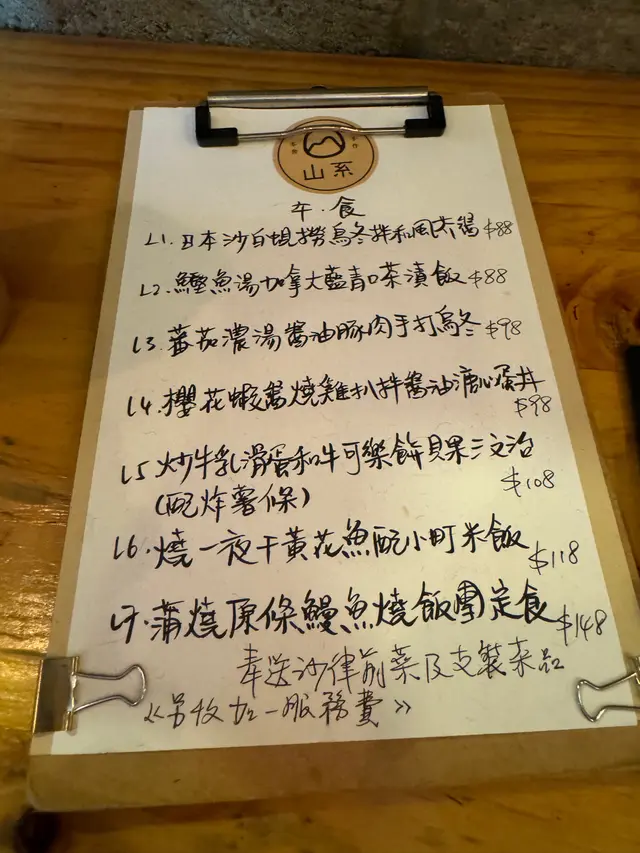 山系
午．食
L1．日本沙白蜆撈烏冬拌和風赤湯 $88
L2．鱷魚湯加拿大藍青口茶漬飯 $88
L3．蕃茄濃湯醬油豚肉手打烏冬 $98
L4．櫻花蝦醬燒雞扒拌醬油溏心蛋丼
$98
L5 炒牛乳滑蛋和牛可樂餅貝果三文治
$108
(配炸薯條)
L6．燒一夜干黃花魚配小町米飯 $118
L7．蒲燒原條鰻魚燒飯團定食 $148
奉送沙律前菜及支裝茶品
《另收加一服務費》